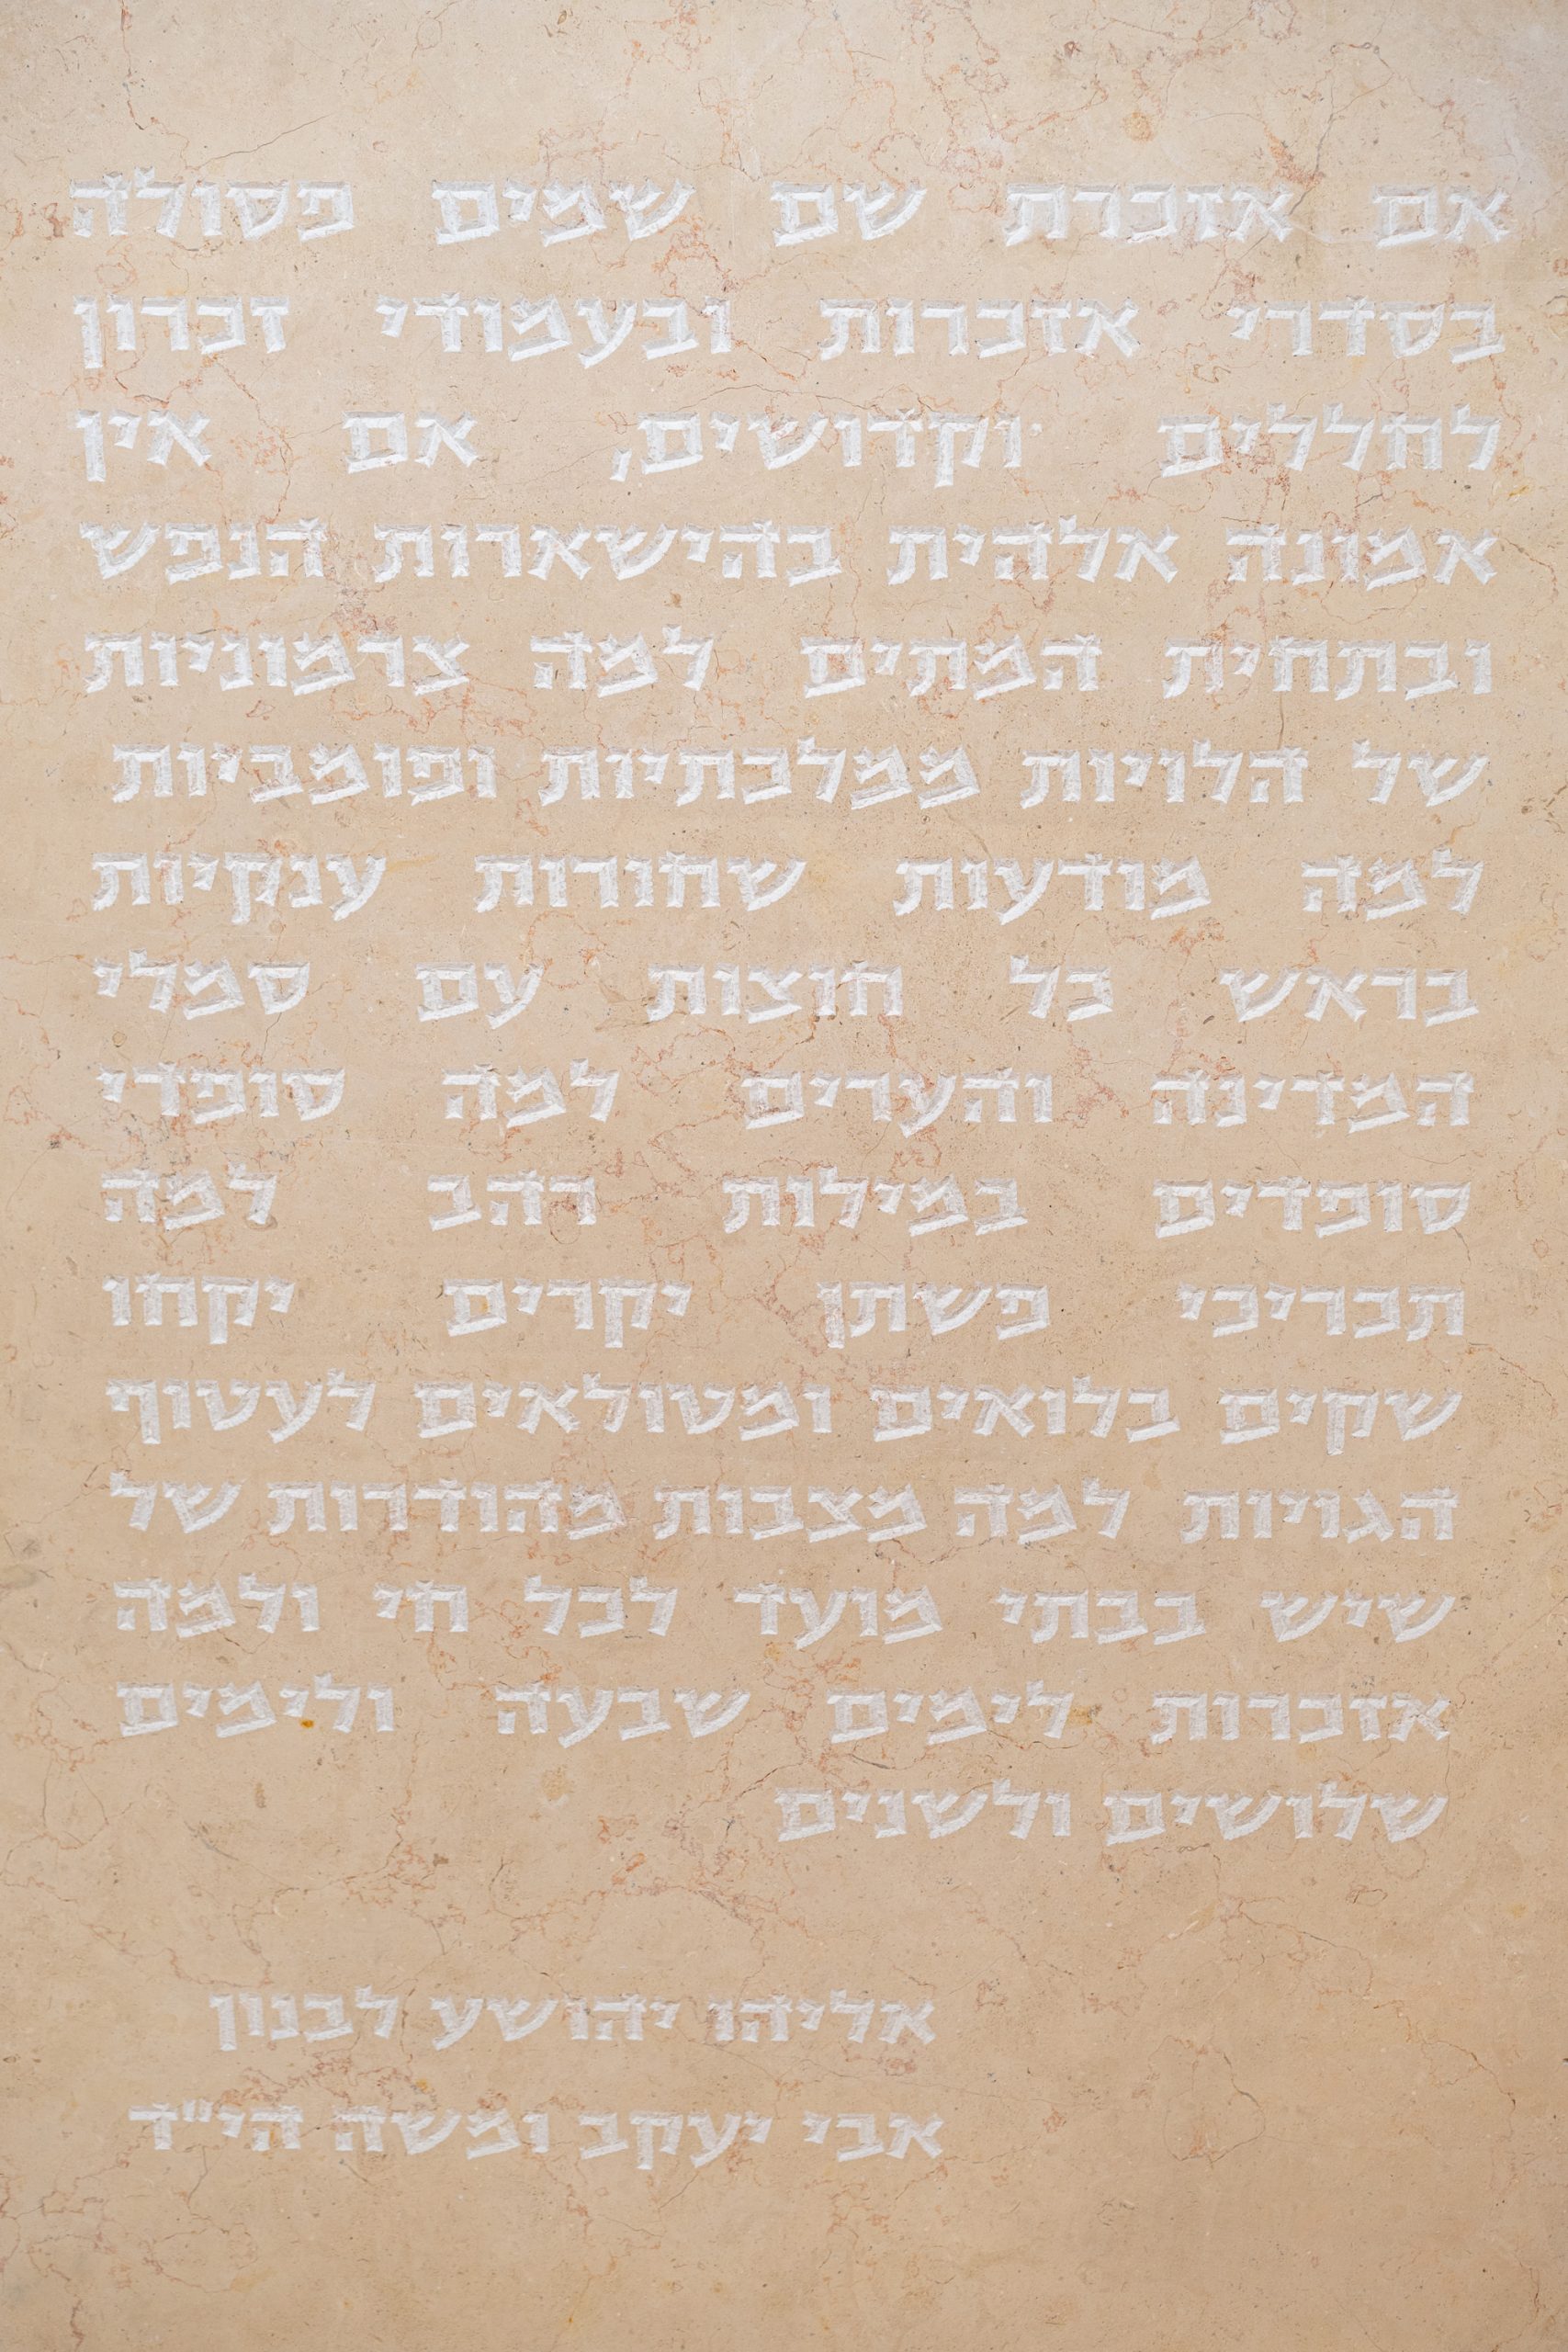 אם אזכרת שם שמים פסולה
בסדרי אזכרות ובעמודי זכרון
לחללים וקדושים, אם אין
אמונה אלהית בהישארות הנפש
ובתחית המתים למה צרמוניות
של הלויות ממלכתיות ופומביות
למה מודעות שחורות ענקיות
בראש כל חוצות עם סמלי
המדינה והערים למה סופדי
סופדים במילות רהב למה
תכריכי פשתן יקרים יקחו
שקים בלואים ומטולאים לעטוף
הגויות למה מצבות מהודרות של
שיש בבתי מועד לכל חי ולמה
אזכרות לימים שבעה ולימים
שלושים ולשנים
אליהו יהושע לבנון
אבי יעקב ומשה הי"ד